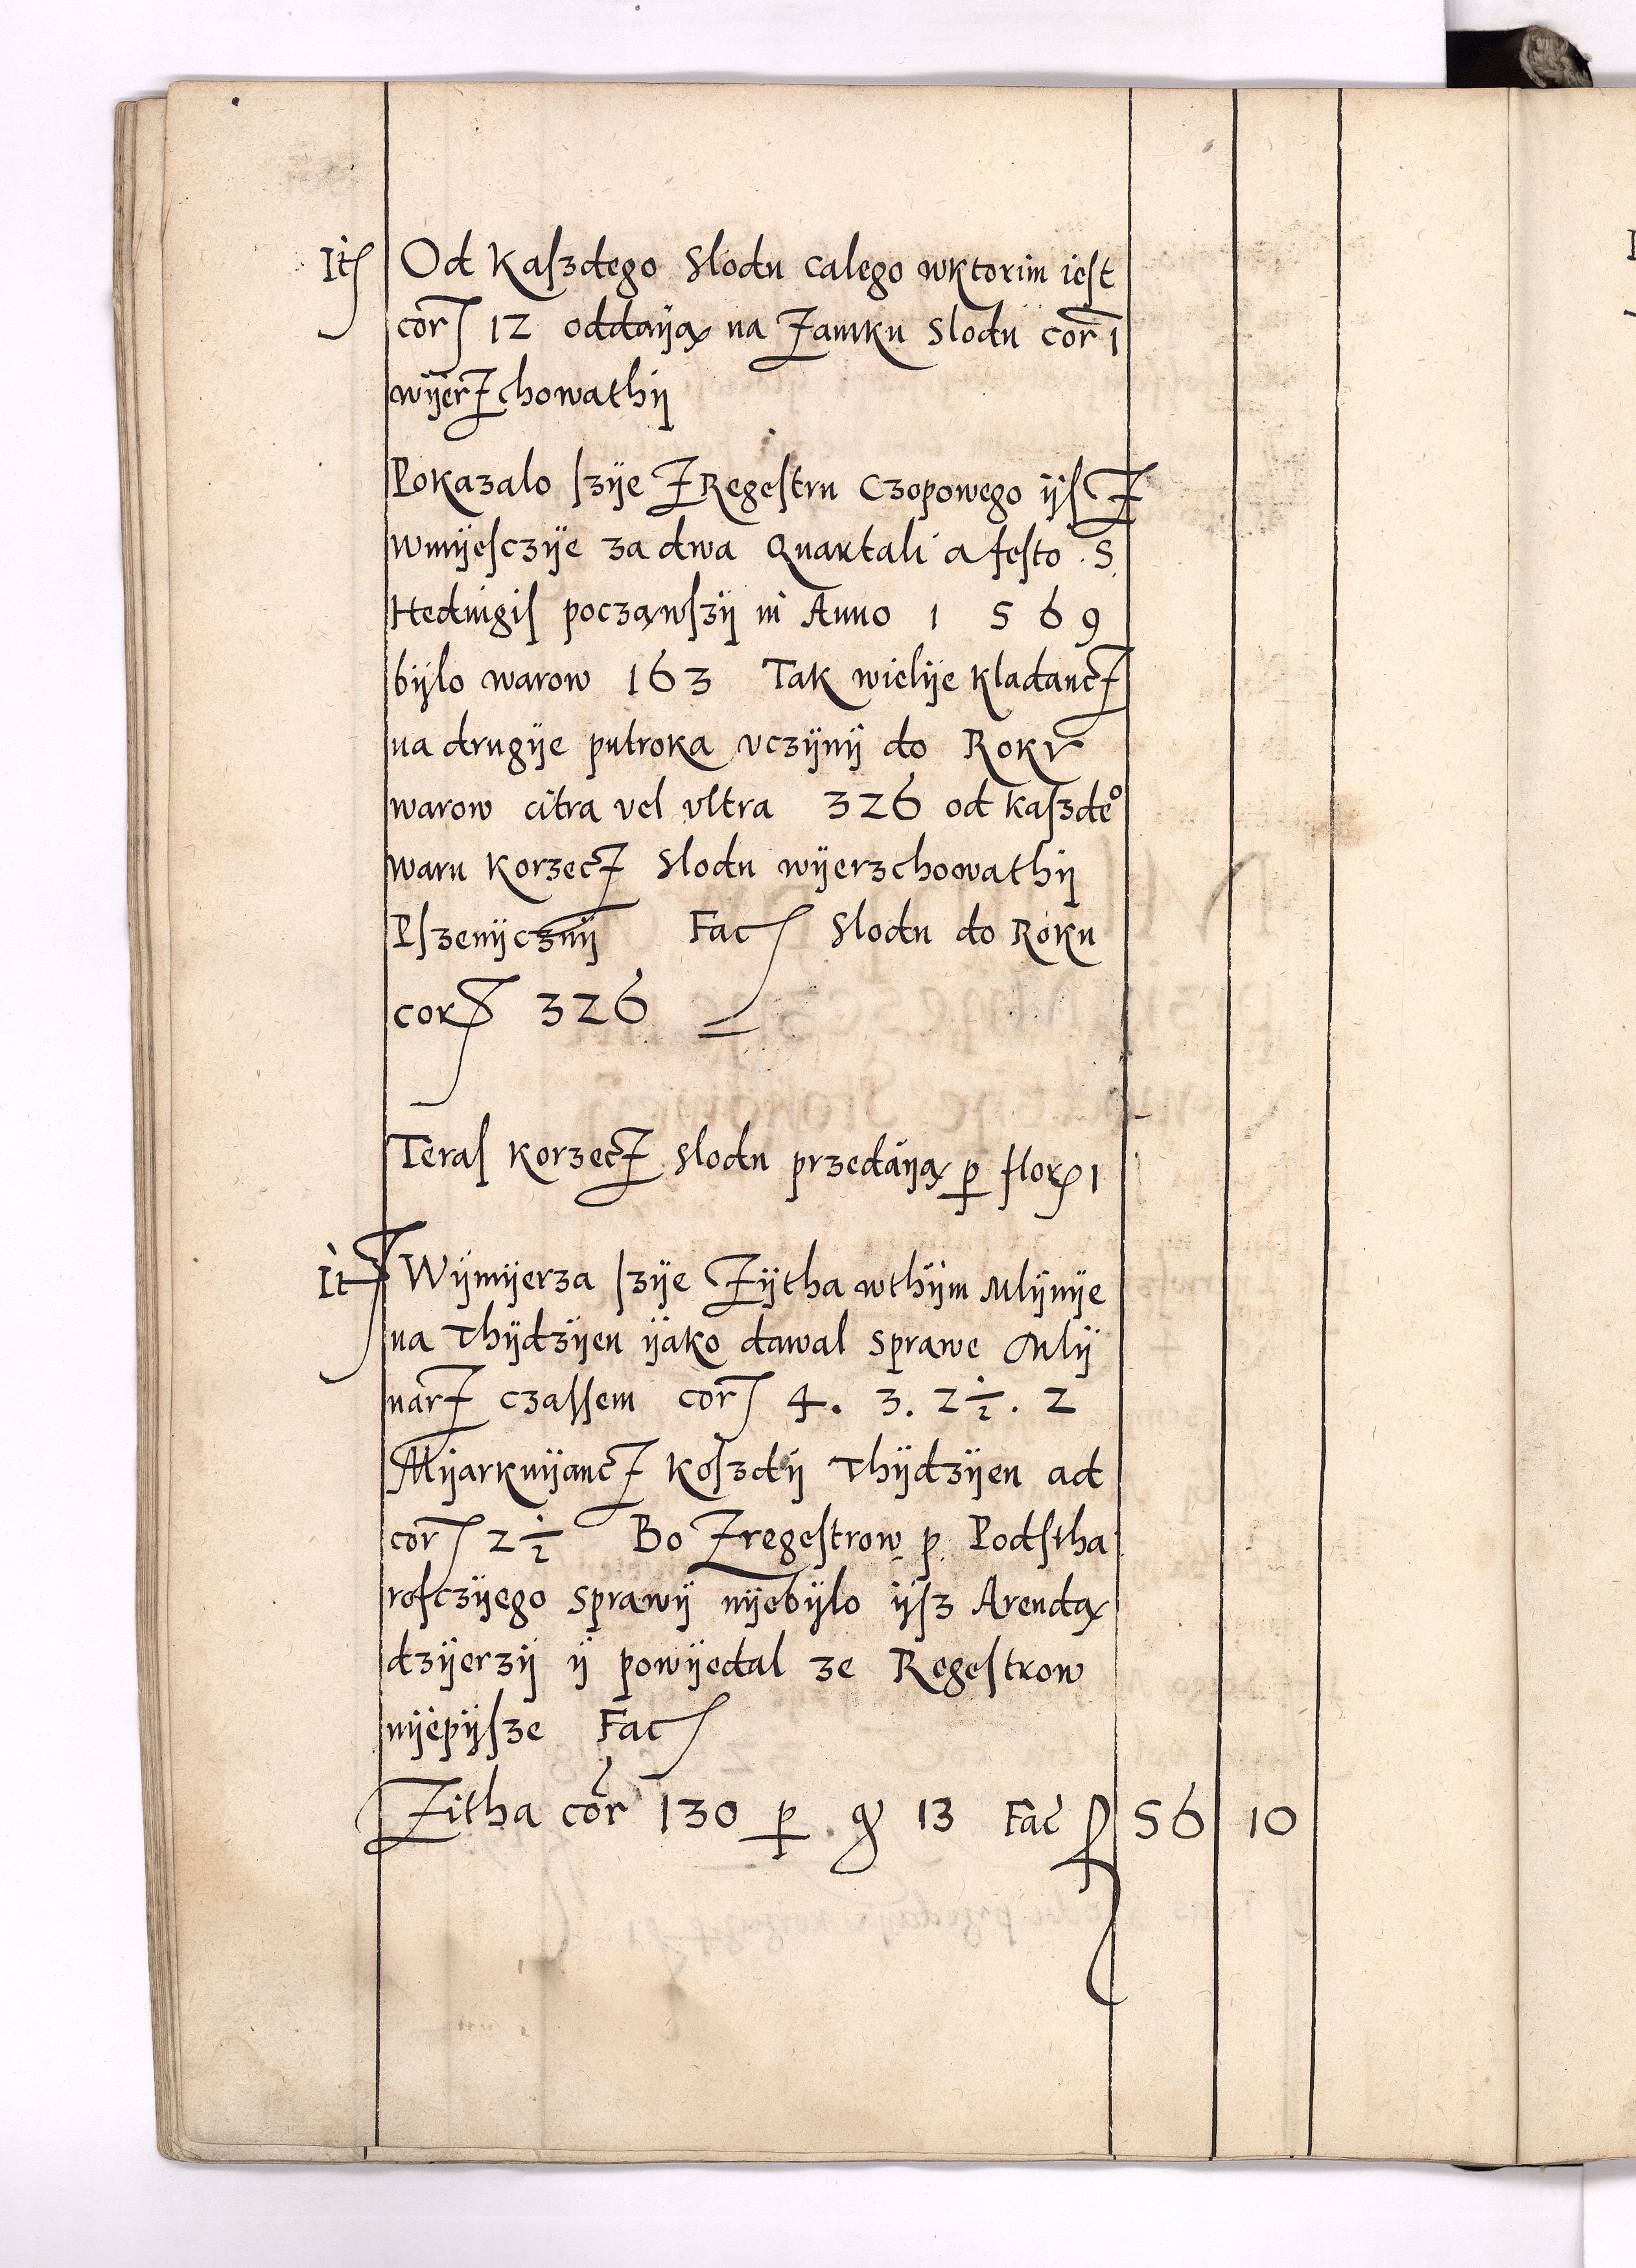 It Od kaſzdego Slodu calego wktorim ieſt
cor 12 oddaÿą na Zamku Slodu cor 1
wÿerZchowathÿ
Pokazalo ſzÿe Z Regeſtru Czopowego ÿſZ
wmÿeſczÿe za dwa Quartali a feſto . S.
Heduigiſ począwſzÿ in Anno 1 5 6 9
bÿlo warow 163 Tak wielÿe kladancZ
na drugÿe pulroka vczÿnÿ do Rokv
warow citra vel vltra 326 od kaſzde⁰
waru korzecZ Slodu wÿerzchowathÿ
Pſzenÿcznÿ Fac Slodu do Roku
cor 326
Teraſ korzecZ Slodu przedaÿą p flor 1
It Wÿmÿerza ſzÿe Zÿtha wthÿm Mlÿnÿe
na Thÿdzÿen ÿako dawal Sprawe Mlÿ
narZ czaſſem cor 4. 3. 2 ½. 2
MÿarkuÿancZ koſzdÿ Thÿdzÿen ad
cor 2 ½ Bo Zregeſtrow p. Podſtha
roſczÿego Sprawÿ nÿebÿlo ÿſz Arendą
dzÿerzÿ ÿ powÿedal ze Regeſtrow
nÿepÿſze Fac
Zitha cor 130 p . g 13 Fac f 56 10